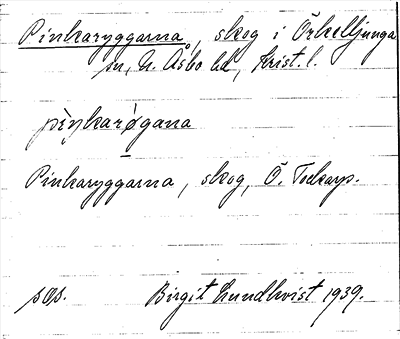 Pinkaryggarna, skog i Örkelljunga
sn, N. Åsbo hd, Krist. l.
pìŋkarøgana
Pinkaryggarna, skog, Ö. Tockarp.
sOs. Birgit Lundkvist 1939.